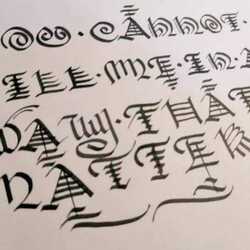 OU·CANNOT
ILL·ME·IN·
WAY·THAT
MATTER